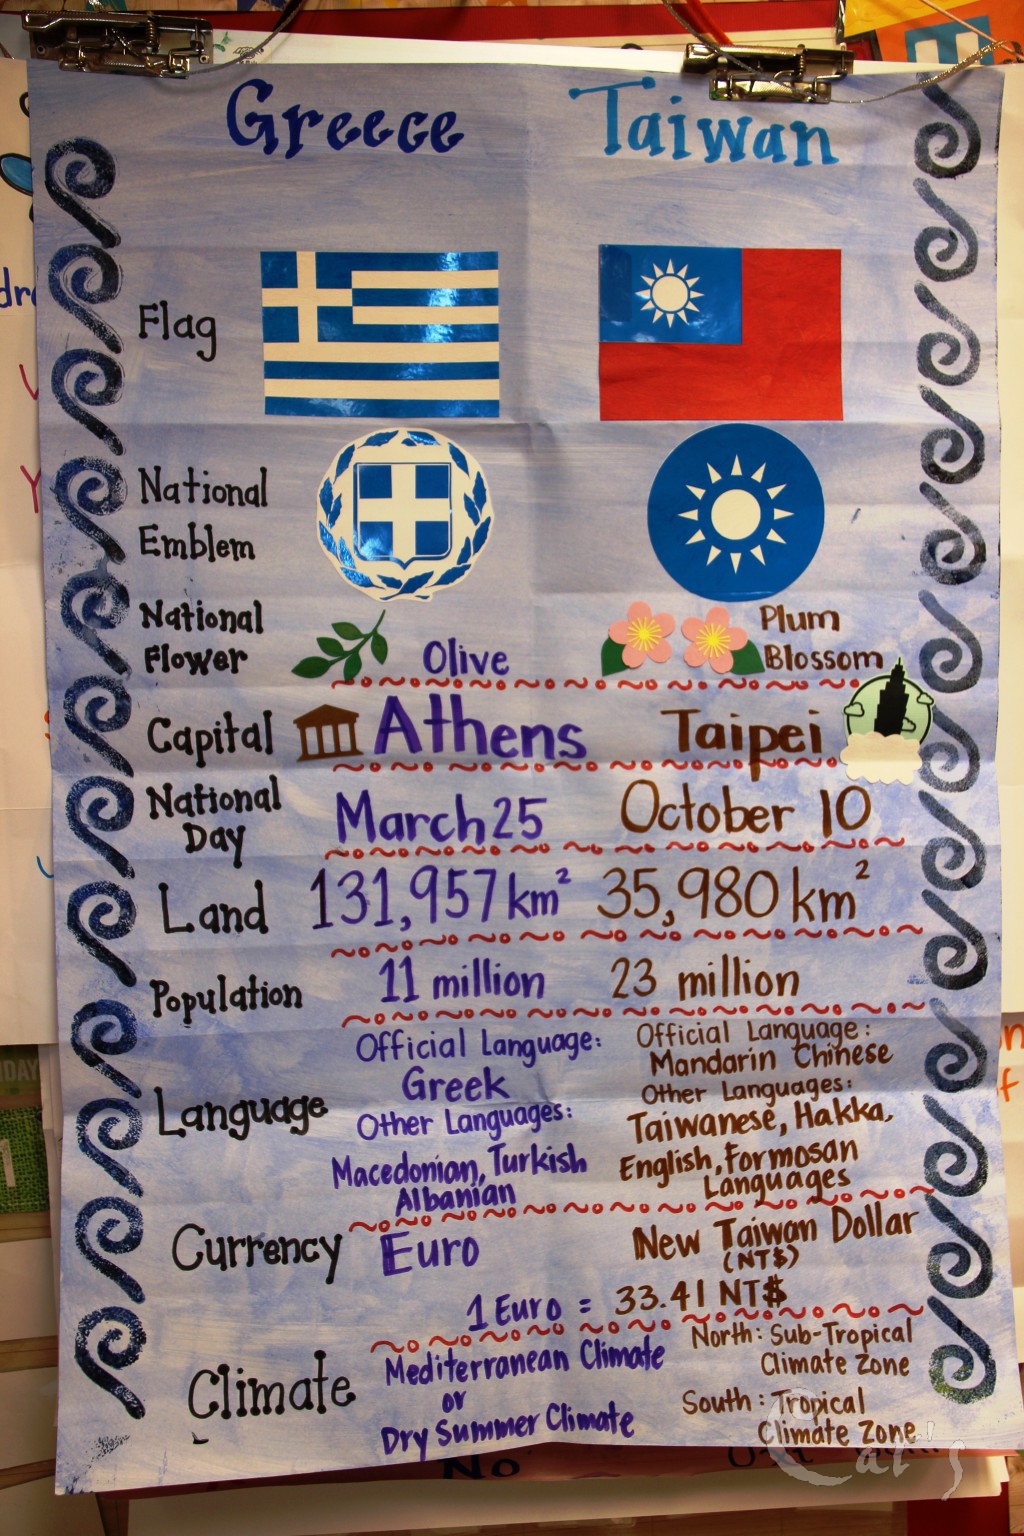 Greece Taiwan
Flag
National
Emblem
National
Flower
Olive
Plum
Blossom
Capital
Athens
Taipei
National
Day
March 25
October 10
Land
131,957 km²
35,980 km²
Population
11 million
23 million
Language
Official Language:
Greek
Other Languages:
Macedonian, Turkish
Albanian
Official Language:
Mandarin Chinese
Other Languages:
Taiwanese, Hakka,
English, Formosan
Languages
Currency
Euro
New Taiwan Dollar
(NT$)
1 Euro = 33.41 NT$
Climate
Mediterranean Climate
or
Dry Summer Climate
North: Sub-Tropical
Climate Zone
South: Tropical
Climate Zone
Cat's
No